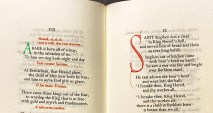 VIII
A BABE is born all of a may,
In the salvation of us,
To him we sing both night and day
Veni Creator Spiritus.
At Bethlehem, that blessed place,
The child of bliss now born he was;
And us to serve God give us grace,
O lux beata Trinitas.
There came three kings out of the East,
To worship the King that is so free,
With gold and myrrh and frankincense,
A solis ortus cardine.
IX
SAINT Stephen was a clerk
In King Herod's hall,
And served him of bread and cloth
Stephen out of kitchen came
With boar's head on hand;
He saw a star was fair and bright
Over Bethlehem stand.
He cast adown the boar's head
And went into the hall:
'I forsake thee, King Herod,
And thy
'I forsake thee, King Herod,
And thy